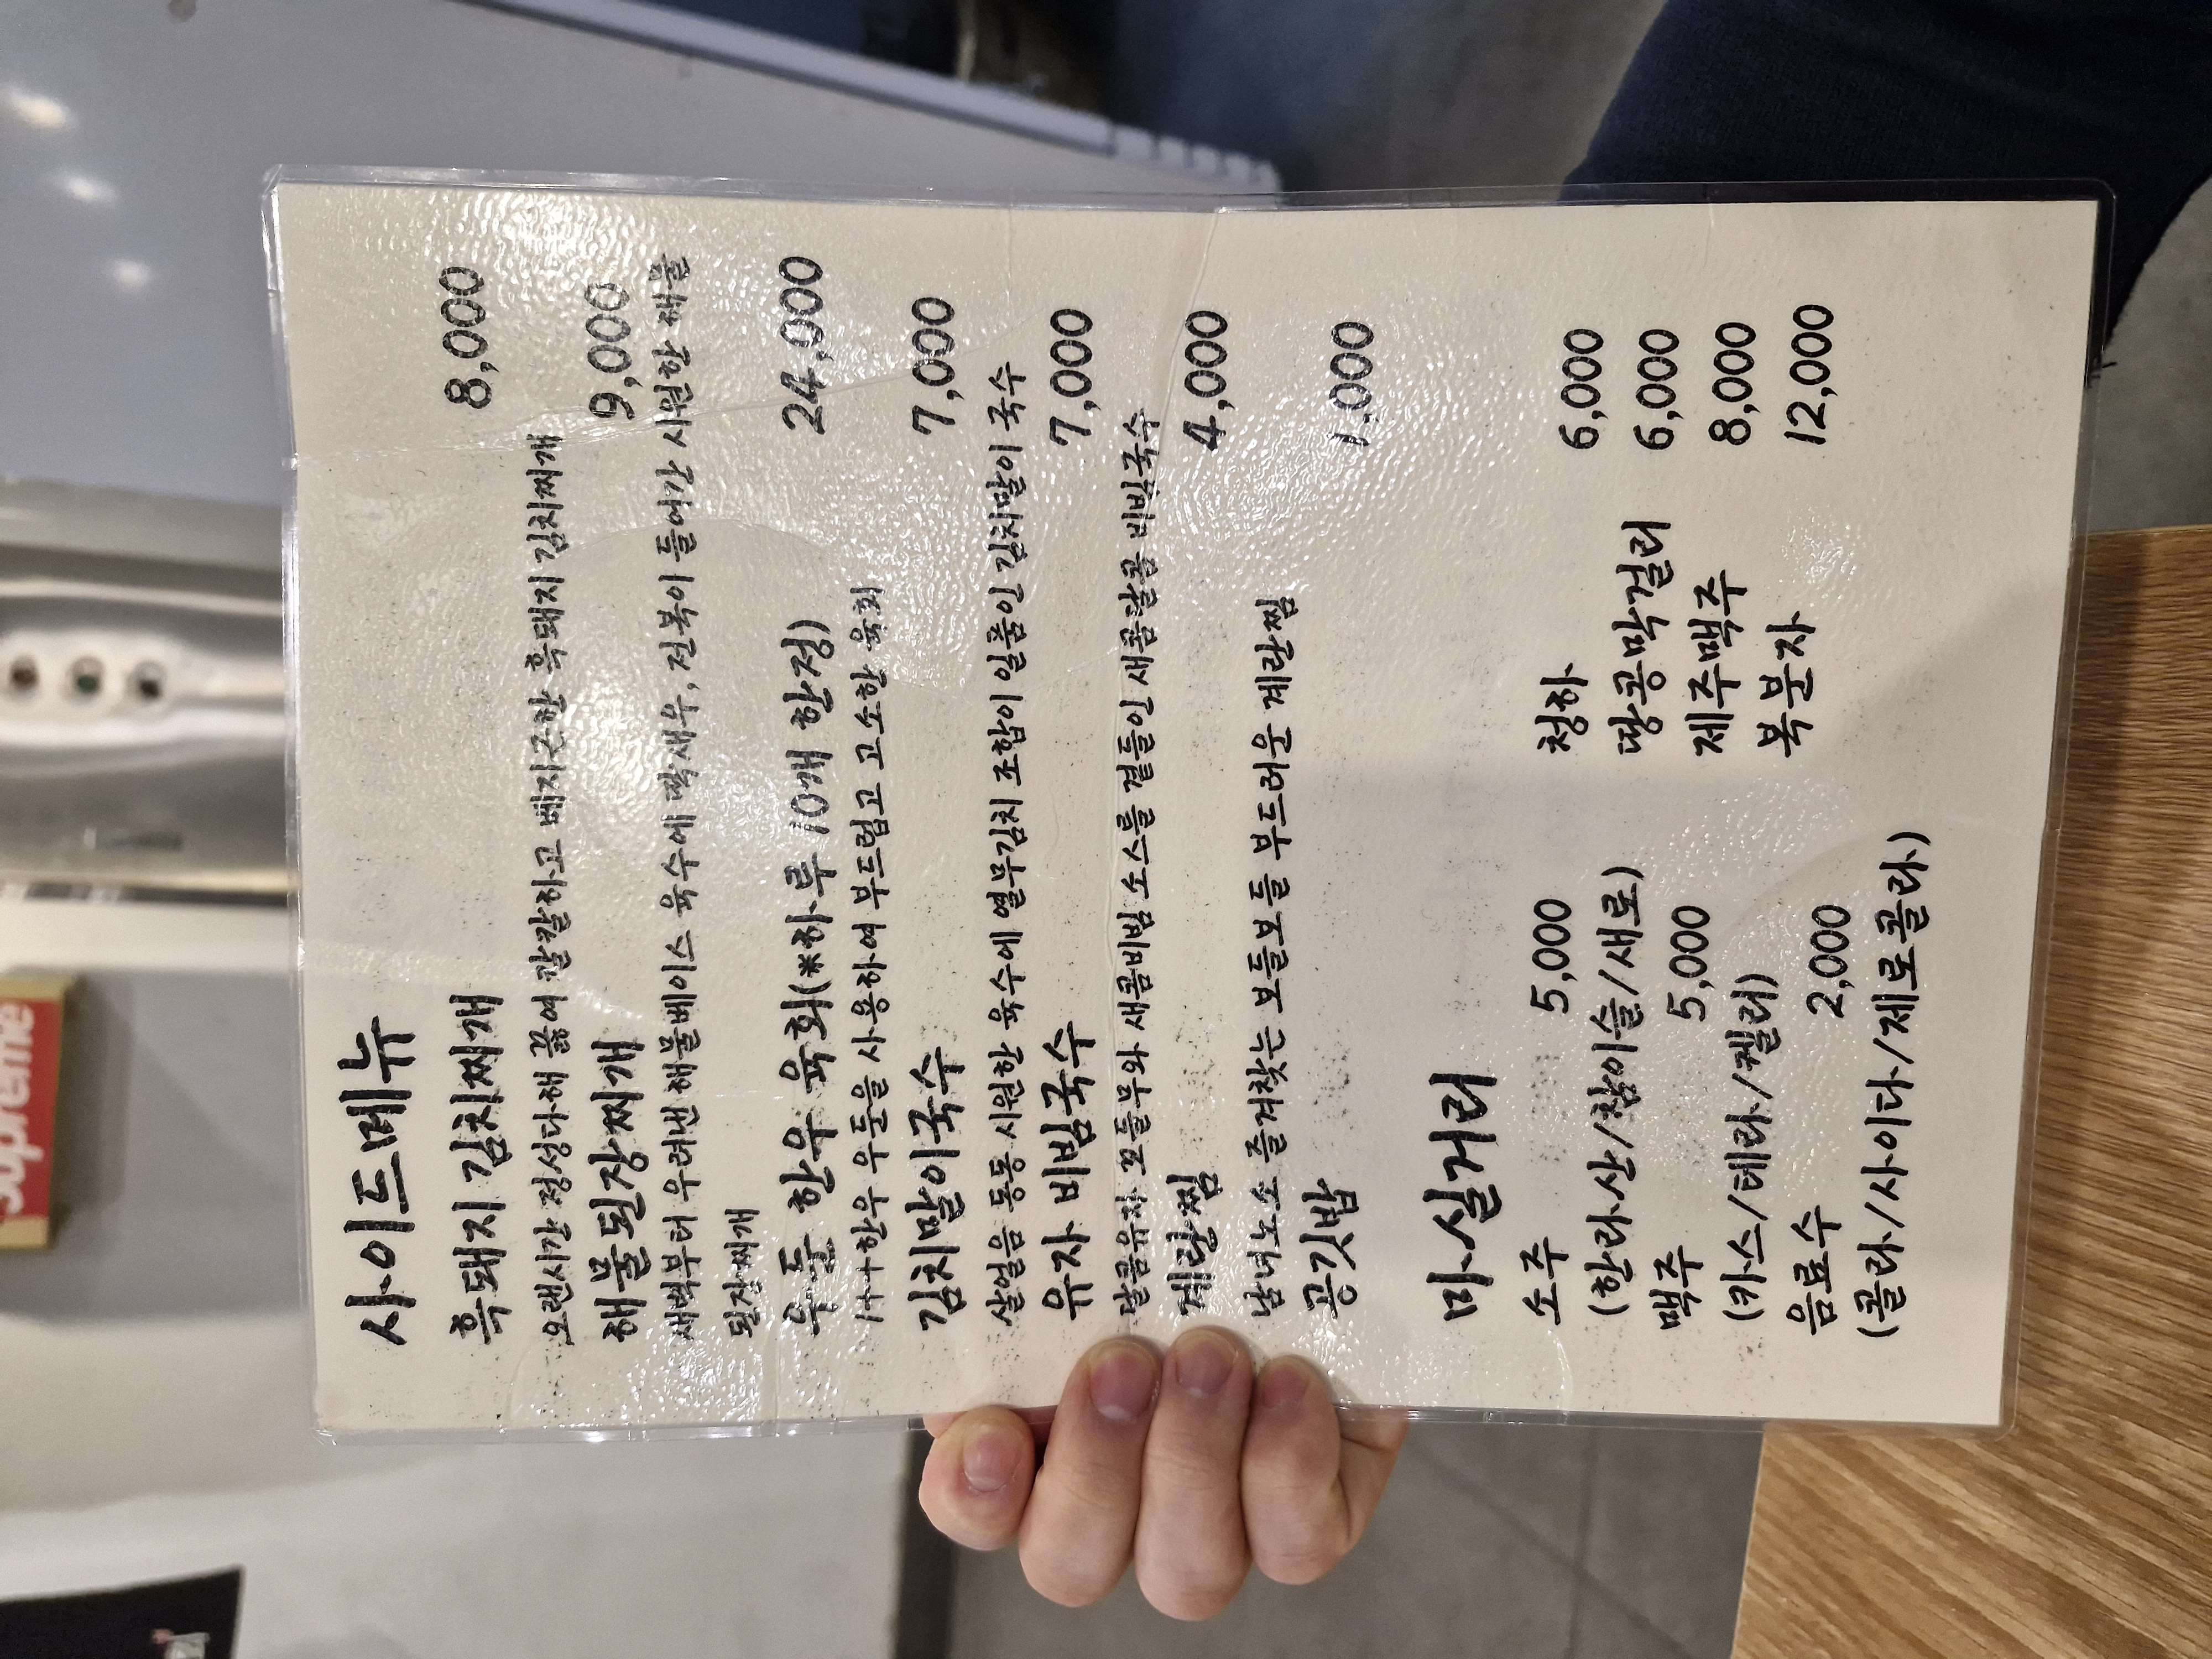 사이드메뉴
흑돼지 김치찌개 8,000
오랜시간 정성다해 끓여 칼칼하고 베지근한 흑돼지 김치찌개
해물된장찌개 9,000
새벽부터 우려낸 해물베이스 육수에 딱새우, 전복이 들어간 시원한 해물
된장찌개
우둔 한우 육회(*하루 10개 한정) 24,000
1+++한우 우둔을 사용하여 부드럽고 고소한 육회
김치말이국수 7,000
살얼음 동동 시원한 육수에 열무김치 조합이 일품인 김치말이 국수
유자 비빔국수 7,000
달콤유자 꼬들무와 새콤비빔 소스를 곁들인 새콤달콤 비빔국수
계란찜 4,000
남녀노소 즐겨찾는 보들보들 부드러운 계란찜
공깃밥 1,000
마실거리
소주 5,000
(한라산/참이슬/새로)
맥주 5,000
(카스/테라/켈리)
음료수 2,000
(콜라/사이다/제로콜라)
청하 6,000
땅콩막걸리 6,000
제주맥주 8,000
복분자 12,000
Supreme